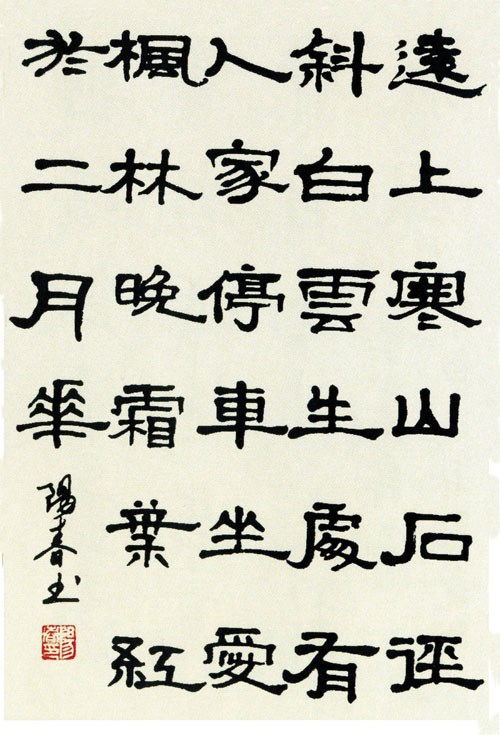 遠上寒山石逕
斜白雲生處有
人家停車坐愛
楓林晚霜葉紅
於二月華
陽春书